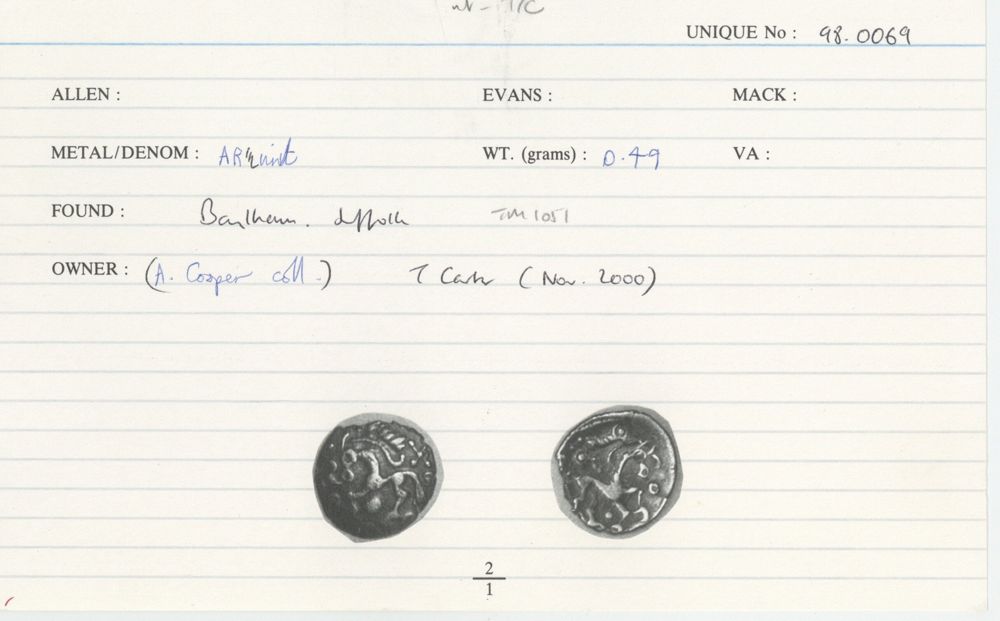 UNIQUE No : 98.0069
ALLEN : EVANS : MACK :
METAL/DENOM : AR 1/2 unit WT. (grams) : 0.49 VA :
FOUND : Barham. Suffolk TM1051
OWNER : (A. Cooper coll.) T Cash (Nov. 2000)
2
1